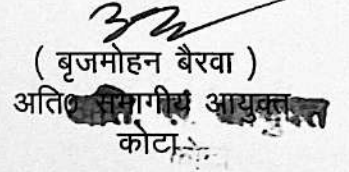 ( बृजमोहन बैरवा )
अति० संभागीय आयुक्त
कोटा